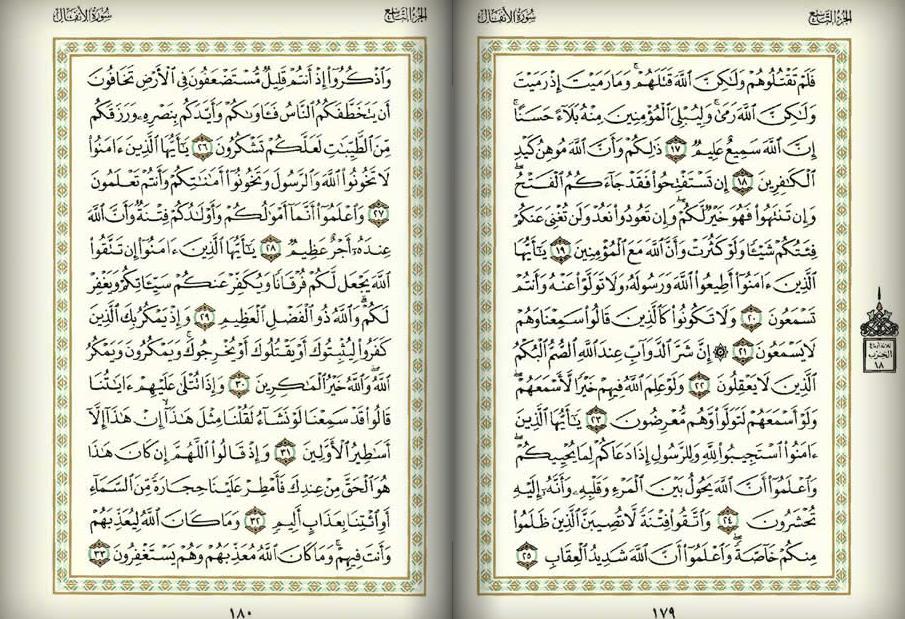 الجزء التاسع
سورة الأنفال
فَلَمْ تَقْتُلُوهُمْ وَلَٰكِنَّ ٱللَّهَ قَتَلَهُمْ ۚ وَمَا رَمَيْتَ إِذْ رَمَيْتَ
وَلَٰكِنَّ ٱللَّهَ رَمَىٰ ۚ وَلِيُبْلِىَ ٱلْمُؤْمِنِينَ مِنْهُ بَلَآءً حَسَنًا ۚ
إِنَّ ٱللَّهَ سَمِيعٌ عَلِيمٌ ١٧ ذَٰلِكُمْ وَأَنَّ ٱللَّهَ مُوهِنُ كَيْدِ
ٱلْكَٰفِرِينَ ١٨ إِن تَسْتَفْتِحُوا۟ فَقَدْ جَآءَكُمُ ٱلْفَتْحُ ۖ
وَإِن تَنتَهُوا۟ فَهُوَ خَيْرٌ لَّكُمْ ۖ وَإِن تَعُودُوا۟ نَعُدْ وَلَن تُغْنِىَ عَنكُمْ
فِئَتُكُمْ شَيْـًٔا وَلَوْ كَثُرَتْ وَأَنَّ ٱللَّهَ مَعَ ٱلْمُؤْمِنِينَ ١٩ يَٰٓأَيُّهَا
ٱلَّذِينَ ءَامَنُوٓا۟ أَطِيعُوا۟ ٱللَّهَ وَرَسُولَهُۥ وَلَا تَوَلَّوْا۟ عَنْهُ وَأَنتُمْ
تَسْمَعُونَ ٢٠ وَلَا تَكُونُوا۟ كَٱلَّذِينَ قَالُوا۟ سَمِعْنَا وَهُمْ
لَا يَسْمَعُونَ ٢١ ۞ إِنَّ شَرَّ ٱلدَّوَآبِّ عِندَ ٱللَّهِ ٱلصُّمُّ ٱلْبُكْمُ
ٱلَّذِينَ لَا يَعْقِلُونَ ٢٢ وَلَوْ عَلِمَ ٱللَّهُ فِيهِمْ خَيْرًا لَّأَسْمَعَهُمْ ۖ
وَلَوْ أَسْمَعَهُمْ لَتَوَلَّوا۟ وَّهُم مُّعْرِضُونَ ٢٣ يَٰٓأَيُّهَا ٱلَّذِينَ
ءَامَنُوا۟ ٱسْتَجِيبُوا۟ لِلَّهِ وَلِلرَّسُولِ إِذَا دَعَاكُمْ لِمَا يُحْيِيكُمْ ۖ
وَٱعْلَمُوٓا۟ أَنَّ ٱللَّهَ يَحُولُ بَيْنَ ٱلْمَرْءِ وَقَلْبِهِۦ وَأَنَّهُۥٓ إِلَيْهِ
تُحْشَرُونَ ٢٤ وَٱتَّقُوا۟ فِتْنَةً لَّا تُصِيبَنَّ ٱلَّذِينَ ظَلَمُوا۟
مِنكُمْ خَآصَّةً ۖ وَٱعْلَمُوٓا۟ أَنَّ ٱللَّهَ شَدِيدُ ٱلْعِقَابِ ٢٥
١٧٩
ثلاثة أرباع
الحزب
١٨
الجزء التاسع
سورة الأنفال
وَٱذْكُرُوٓا۟ إِذْ أَنتُمْ قَلِيلٌ مُّسْتَضْعَفُونَ فِى ٱلْأَرْضِ تَخَافُونَ
أَن يَتَخَطَّفَكُمُ ٱلنَّاسُ فَـَٔاوَىٰكُمْ وَأَيَّدَكُم بِنَصْرِهِۦ وَرَزَقَكُم
مِّنَ ٱلطَّيِّبَٰتِ لَعَلَّكُمْ تَشْكُرُونَ ٢٦ يَٰٓأَيُّهَا ٱلَّذِينَ ءَامَنُوا۟
لَا تَخُونُوا۟ ٱللَّهَ وَٱلرَّسُولَ وَتَخُونُوٓا۟ أَمَٰنَٰتِكُمْ وَأَنتُمْ تَعْلَمُونَ
٢٧ وَٱعْلَمُوٓا۟ أَنَّمَآ أَمْوَٰلُكُمْ وَأَوْلَٰدُكُمْ فِتْنَةٌ وَأَنَّ ٱللَّهَ
عِندَهُۥٓ أَجْرٌ عَظِيمٌ ٢٨ يَٰٓأَيُّهَا ٱلَّذِينَ ءَامَنُوٓا۟ إِن تَتَّقُوا۟
ٱللَّهَ يَجْعَل لَّكُمْ فُرْقَانًا وَيُكَفِّرْ عَنكُمْ سَيِّـَٔاتِكُمْ وَيَغْفِرْ
لَكُمْ ۗ وَٱللَّهُ ذُو ٱلْفَضْلِ ٱلْعَظِيمِ ٢٩ وَإِذْ يَمْكُرُ بِكَ ٱلَّذِينَ
كَفَرُوا۟ لِيُثْبِتُوكَ أَوْ يَقْتُلُوكَ أَوْ يُخْرِجُوكَ ۚ وَيَمْكُرُونَ وَيَمْكُرُ
ٱللَّهُ ۖ وَٱللَّهُ خَيْرُ ٱلْمَٰكِرِينَ ٣٠ وَإِذَا تُتْلَىٰ عَلَيْهِمْ ءَايَٰتُنَا
قَالُوا۟ قَدْ سَمِعْنَا لَوْ نَشَآءُ لَقُلْنَا مِثْلَ هَٰذَآ ۙ إِنْ هَٰذَآ إِلَّآ
أَسَٰطِيرُ ٱلْأَوَّلِينَ ٣١ وَإِذْ قَالُوا۟ ٱللَّهُمَّ إِن كَانَ هَٰذَا
هُوَ ٱلْحَقَّ مِنْ عِندِكَ فَأَمْطِرْ عَلَيْنَا حِجَارَةً مِّنَ ٱلسَّمَآءِ
أَوِ ٱئْتِنَا بِعَذَابٍ أَلِيمٍ ٣٢ وَمَا كَانَ ٱللَّهُ لِيُعَذِّبَهُمْ
وَأَنتَ فِيهِمْ ۚ وَمَا كَانَ ٱللَّهُ مُعَذِّبَهُمْ وَهُمْ يَسْتَغْفِرُونَ ٣٣
١٨٠